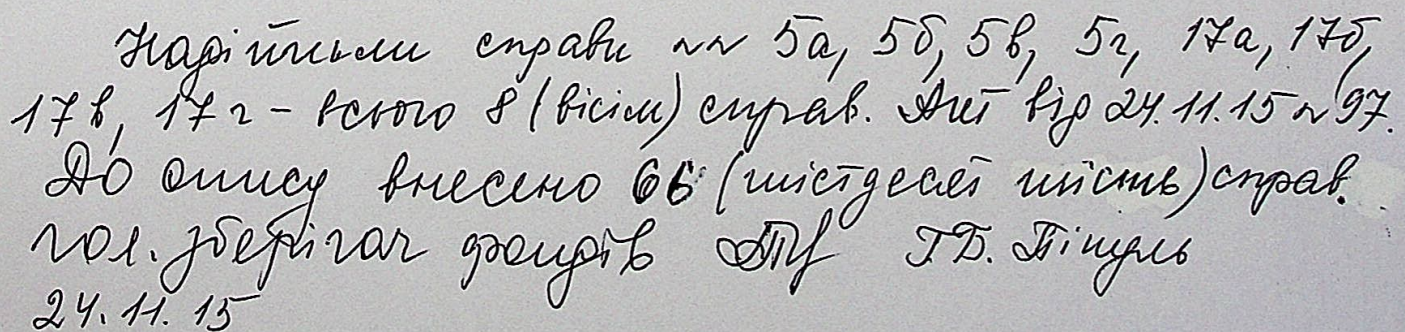 Надійшли справи №№ 5а, 5б, 5в, 5г, 17а, 17б,
17в, 17г - всього 8 (вісім) справ. Акт від 24.11.15 № 97.
До опису внесено 66 (шістдесят шість) справ.
гол. зберігач фондів Г.Б.
24.11.15